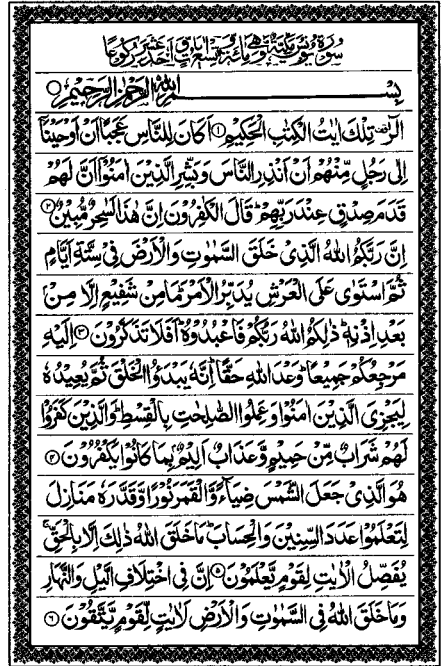 سورة يونس مكية وهي مائة وتسع آيات واحد عشر ركوعا
بِسْمِ اللهِ الرَّحْمٰنِ الرَّحِيْمِ
الٓرٰ تِلْكَ اٰيٰتُ الْكِتٰبِ الْحَكِيْمِ ۝۱ اَكَانَ لِلنَّاسِ عَجَبًا اَنْ اَوْحَيْنَاۤ
اِلٰى رَجُلٍ مِّنْهُمْ اَنْ اَنْذِرِ النَّاسَ وَبَشِّرِ الَّذِيْنَ اٰمَنُوْۤا اَنَّ لَهُمْ
قَدَمَ صِدْقٍ عِنْدَ رَبِّهِمْ ؕ قَالَ الْكٰفِرُوْنَ اِنَّ هٰذَا لَسٰحِرٌ مُّبِيْنٌ ۝۲
اِنَّ رَبَّكُمُ اللهُ الَّذِيْ خَلَقَ السَّمٰوٰتِ وَالْاَرْضَ فِيْ سِتَّةِ اَيَّامٍ
ثُمَّ اسْتَوٰى عَلَى الْعَرْشِ يُدَبِّرُ الْاَمْرَ ؕ مَا مِنْ شَفِيْعٍ اِلَّا مِنْۢ
بَعْدِ اِذْنِهٖ ؕ ذٰلِكُمُ اللهُ رَبُّكُمْ فَاعْبُدُوْهُ ؕ اَفَلَا تَذَكَّرُوْنَ ۝۳ اِلَيْهِ
مَرْجِعُكُمْ جَمِيْعًا ؕ وَعْدَ اللهِ حَقًّا ؕ اِنَّهٗ يَبْدَؤُا الْخَلْقَ ثُمَّ يُعِيْدُهٗ
لِيَجْزِيَ الَّذِيْنَ اٰمَنُوْا وَعَمِلُوا الصّٰلِحٰتِ بِالْقِسْطِ ؕ وَالَّذِيْنَ كَفَرُوْا
لَهُمْ شَرَابٌ مِّنْ حَمِيْمٍ وَّعَذَابٌ اَلِيْمٌۢ بِمَا كَانُوْا يَكْفُرُوْنَ ۝۴
هُوَ الَّذِيْ جَعَلَ الشَّمْسَ ضِيَآءً وَّالْقَمَرَ نُوْرًا وَّقَدَّرَهٗ مَنَازِلَ
لِتَعْلَمُوْا عَدَدَ السِّنِيْنَ وَالْحِسَابَ ؕ مَا خَلَقَ اللهُ ذٰلِكَ اِلَّا بِالْحَقِّ ۚ
يُفَصِّلُ الْاٰيٰتِ لِقَوْمٍ يَّعْلَمُوْنَ ۝۵ اِنَّ فِي اخْتِلَافِ الَّيْلِ وَالنَّهَارِ
وَمَا خَلَقَ اللهُ فِي السَّمٰوٰتِ وَالْاَرْضِ لَاٰيٰتٍ لِّقَوْمٍ يَّتَّقُوْنَ ۝۶